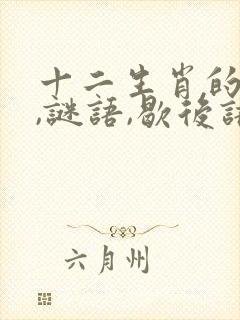 十二生肖的
,謎語,歇後語
六月州